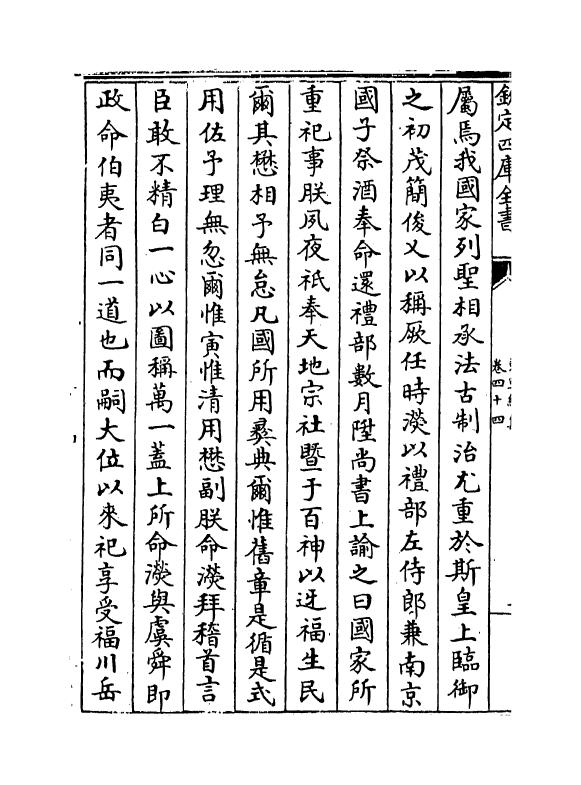 欽定四庫全書
卷四十四
屬焉我國家列聖相承法古制治尤重於斯皇上臨御
之初茂簡俊乂以稱厥任時濙以禮部左侍郎兼南京
國子祭酒奉命還禮部數月陞尚書上諭之曰國家所
重祀事朕夙夜祇奉天地宗社暨于百神以迓福生民
爾其懋相予無怠凡國所用彛典爾惟舊章是循是式
用佐予理無忽爾惟寅惟清用懋副朕命濙拜稽首言
臣敢不精白一心以圖稱萬一蓋上所命濙與虞舜即
政命伯夷者同一道也而嗣大位以來祀享受福川岳